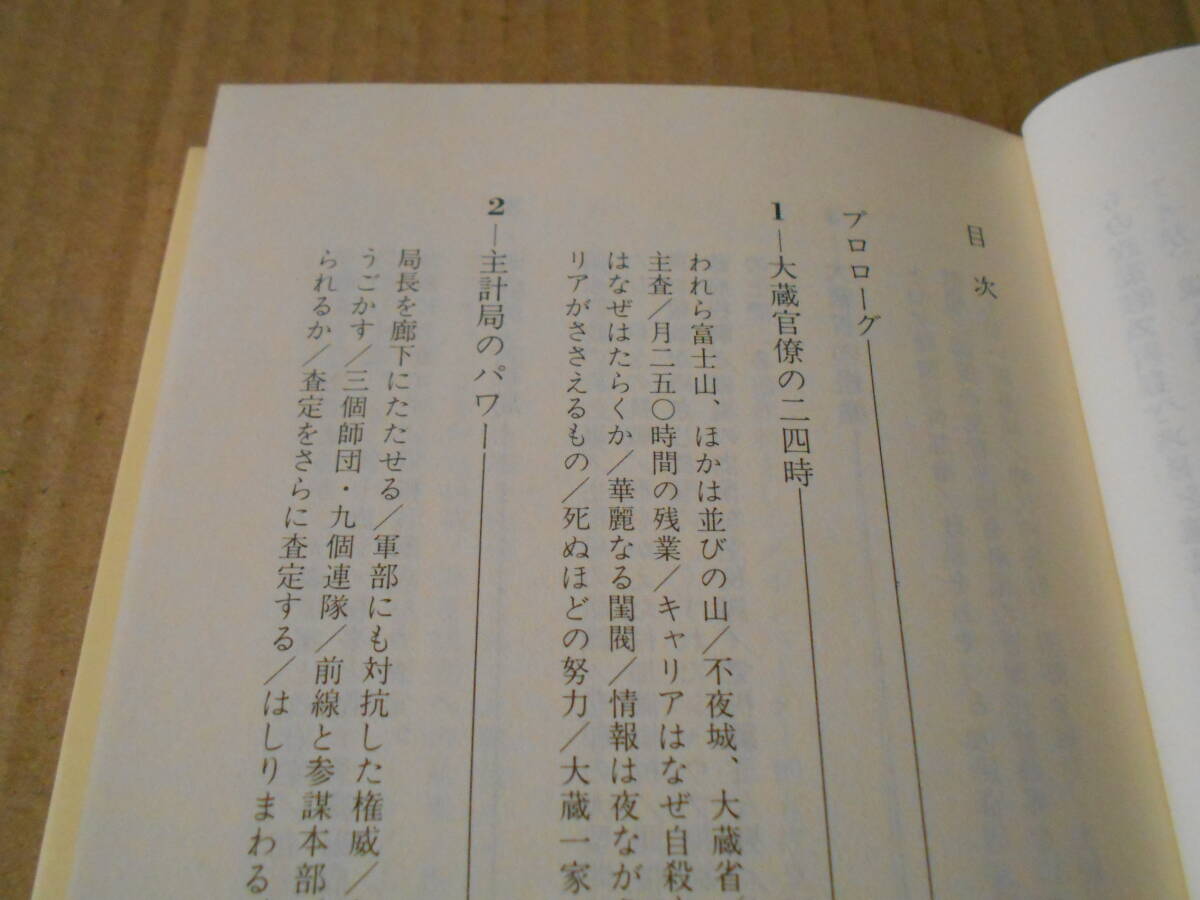 目次
プロローグ
1—大蔵官僚の二四時
われら富士山、ほかは並びの山/不夜城、大蔵省/
主査/月二五〇時間の残業/キャリアはなぜ自殺
はなぜはたらくか/華麗なる閨閥/情報は夜なが
リアがささえるもの/死ぬほどの努力/大蔵一家
2—主計局のパワー
局長を廊下にたたせる/軍部にも対抗した権威/
うごかす/三個師団・九個連隊/前線と参謀本部
られるか/査定をさらに査定する/はしりまわる